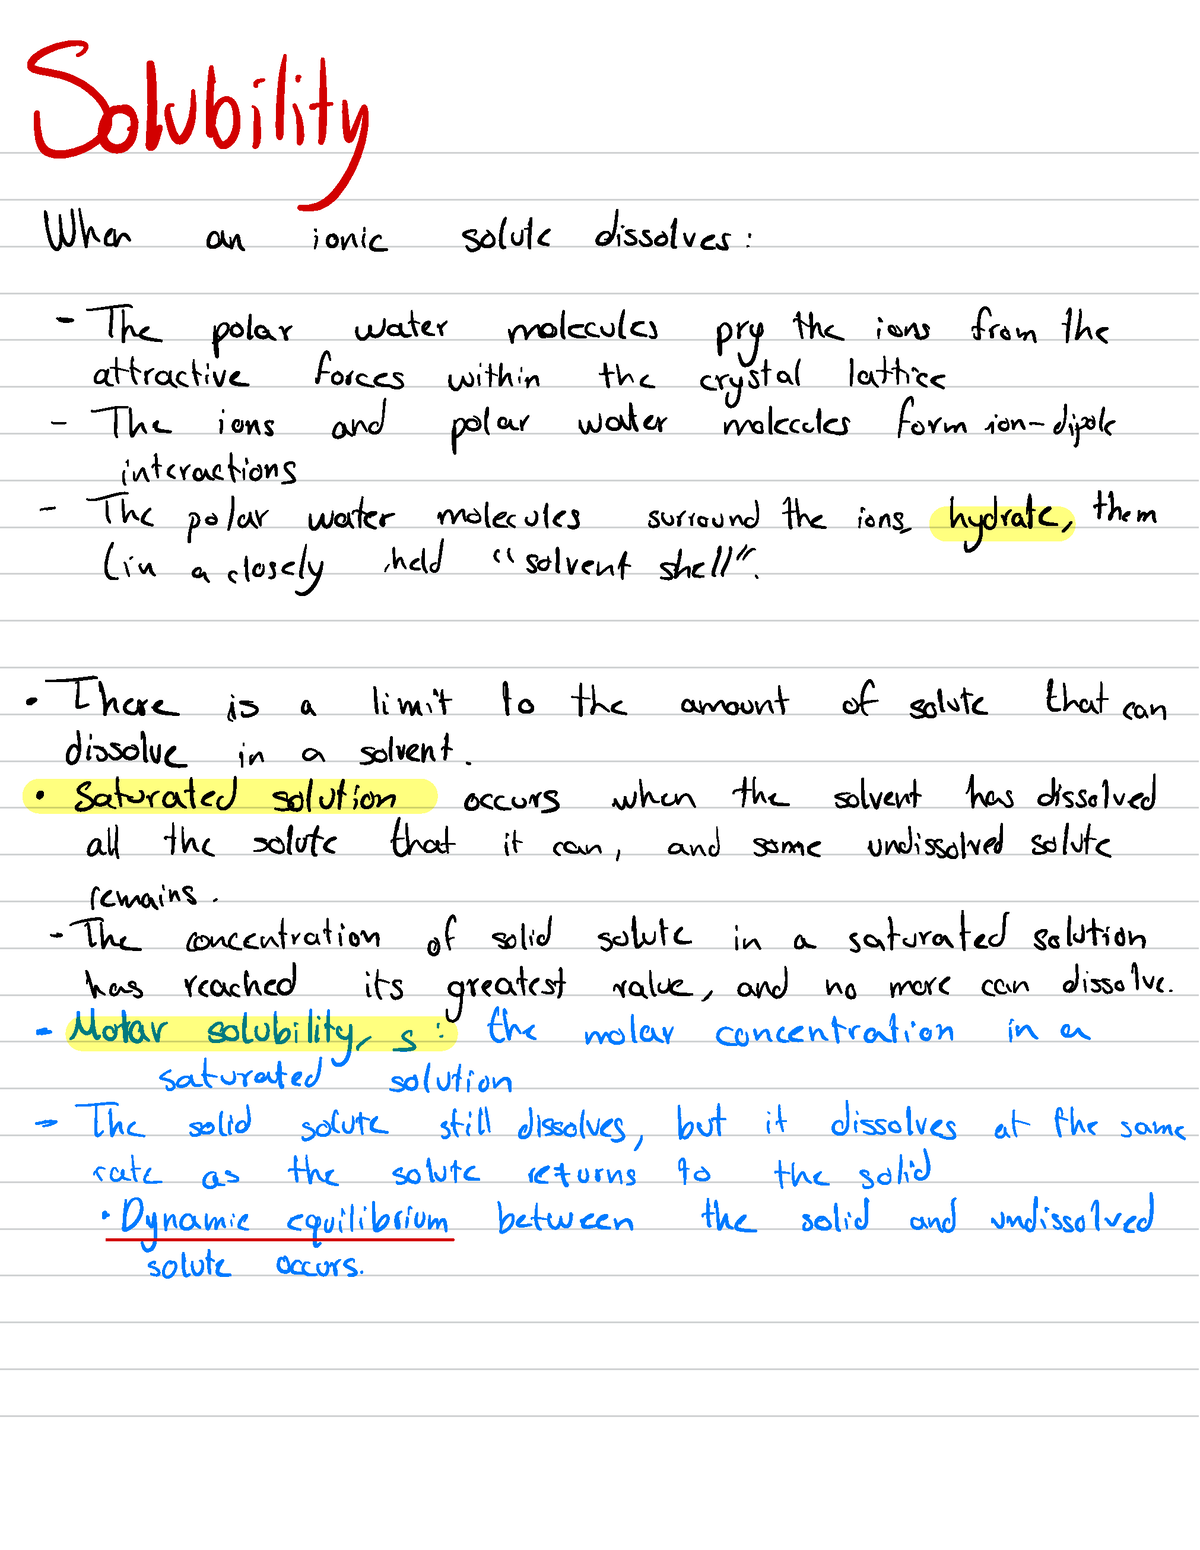 Solubility
When an ionic solute dissolves:
- The polar water molecules pry the ions from the
attractive forces within the crystal lattice
- The ions and polar water molecules form ion-dipole
interactions
- The polar water molecules surround the ions, hydrate, them
(in a closely held "solvent shell".
• There is a limit to the amount of solute that can
dissolve in a solvent.
• Saturated solution occurs when the solvent has dissolved
all the solute that it can, and some undissolved solute
remains.
- The concentration of solid solute in a saturated solution
has reached its greatest value, and no more can dissolve.
- Molar solubility, s: the molar concentration in a
saturated solution
- The solid solute still dissolves, but it dissolves at the same
rate as the solute returns to the solid
• Dynamic equilibrium between the solid and undissolved
solute occurs.